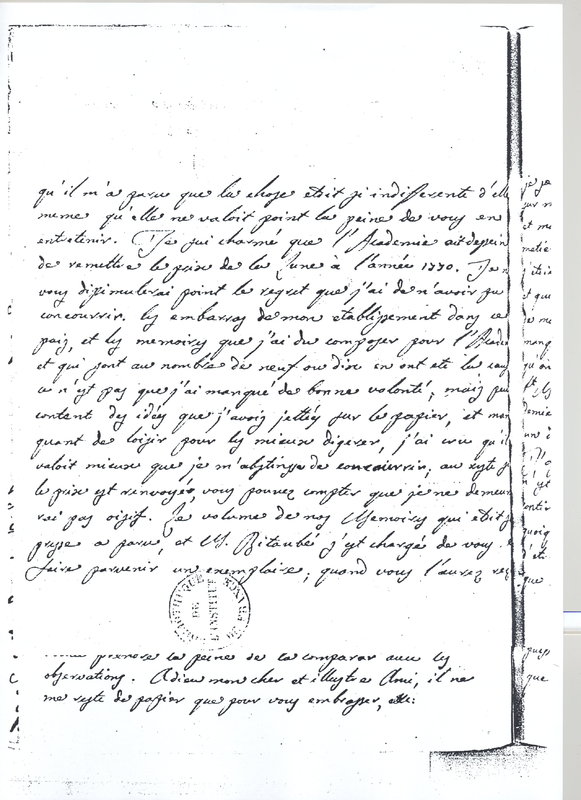 qu'il m'a paru que la chose etoit si indifferente d'elle
meme qu'elle ne valoit point la peine de vous en
entretenir. Je sui charmé que l'Academie ait dessein
de remettre le prix de la Lune à l'année 1770. Je n
vous dissimulerai point le regret que j'ai de n'avoir pu
concourrir. les embarras de mon etablissement dans ce
pais, et les memoires que j'ai du composer pour l'Acade
et qui sont au nombre de neuf ou dix en ont eté la cau
ce n'est pas que j'ai manqué de bonne volonté; mais peu
content des idées que j'avois jettées sur le papier, et man
quant de loisir pour les mieux digerer, j'ai cru qu'il
valoit mieux que je m'abstinsse de concourrir, au reste s
le prix est renvoyé, vous pouvez compter que je ne demeu
rai pas oisif. Le volume de nos Memoires qui etoit s
presse a paru, et M. Bitaubé s'est chargé de vous
faire parvenir un exemplaire; quand vous l'aurez reç
BIBLIOTHEQUE
DE
L'INSTITUT
prendre la peine de la comparar avec les
observations. Adieu mon cher et illustre Ami, il ne
me reste de papier que pour vous embrasser, etc:
je
sur
et
metie
et que
je me
mang
demie
un
n'est
quoiq
d'et
que
que